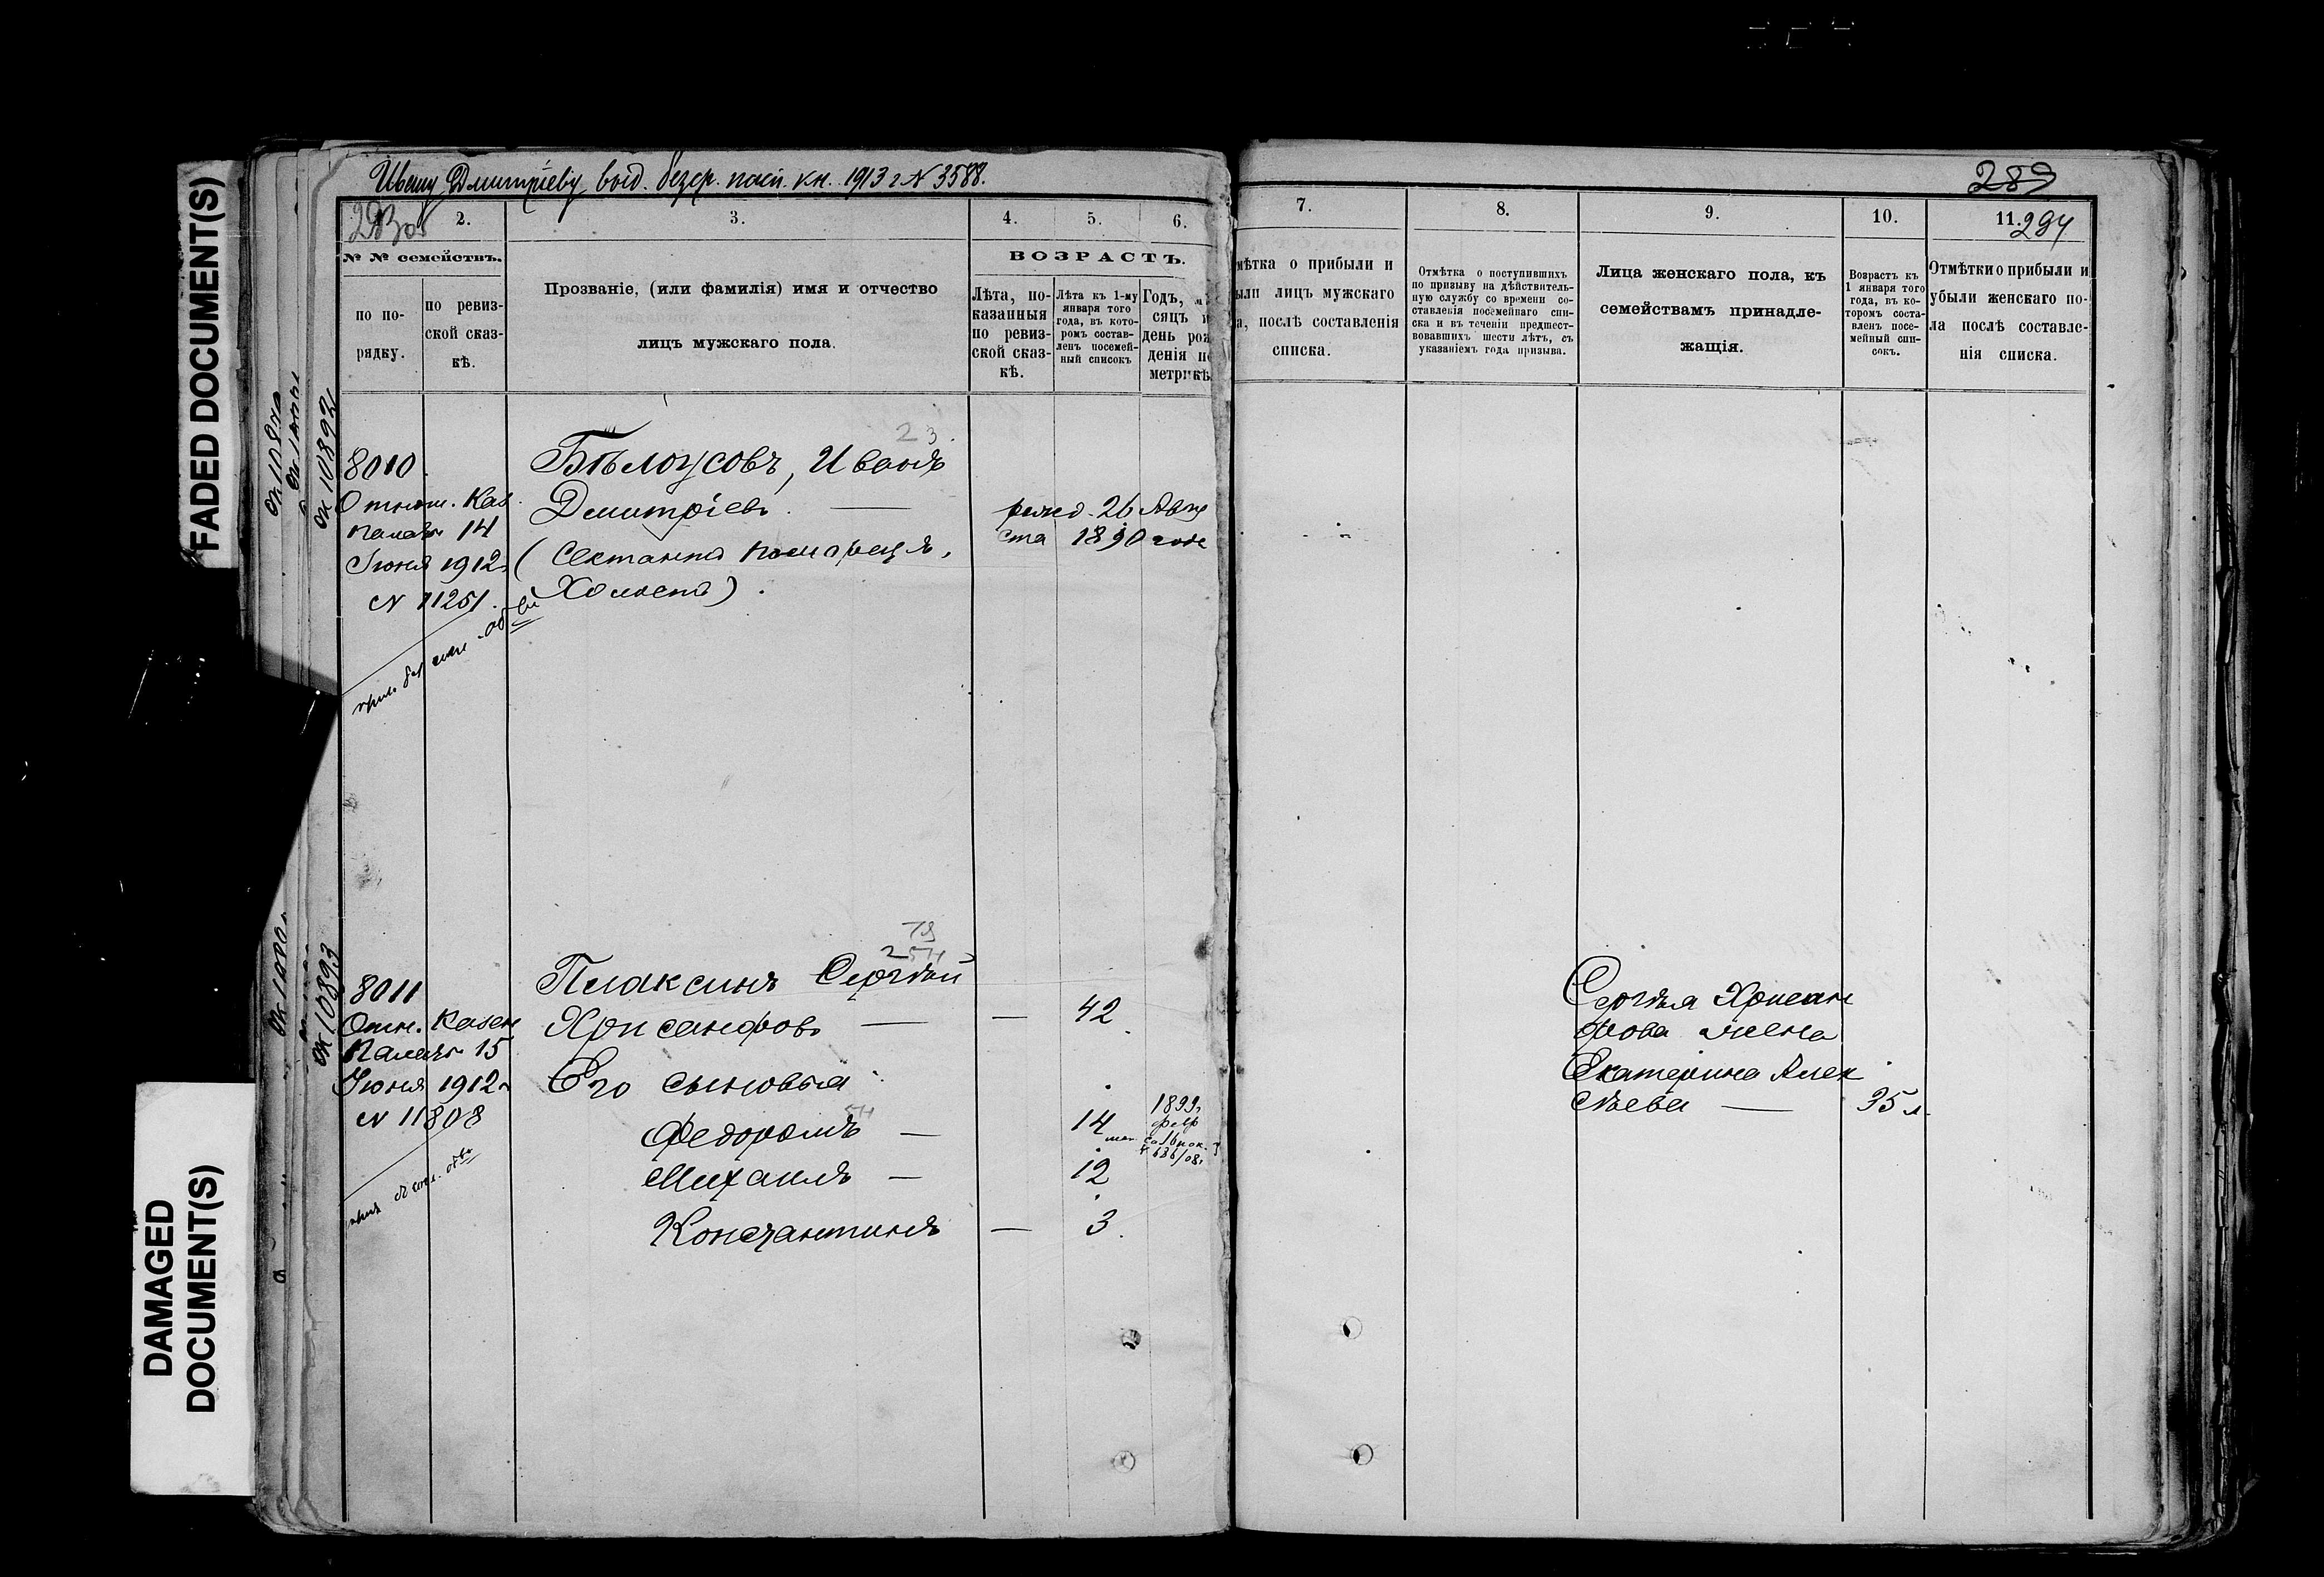 FADED DOCUMENT(S)
DAMAGED
DOCUMENT(S)
Ивану Дмитріеву выд. безср. пасп. кн. 1913 г N 3588.
289
294
2.
3.
4.
5.
6.
7.
8.
9.
10.
11.
№ № семействъ.
по по-
рядку.
по ревиз-
ской сказ-
кѣ.
Прозваніе, (или фамилія) имя и отчество
лицъ мужскаго пола.
ВОЗРАСТЪ.
Лѣта, по-
казанныя
по ревиз-
ской сказ-
кѣ.
Лѣта къ 1-му
января того
года, въ кото-
ромъ состав-
ленъ посемей-
ный списокъ
Годъ, мѣ
сяцъ и
день рож
денія по
метрикѣ
мѣтка о прибыли и
ыли лицъ мужскаго
а, послѣ составленія
списка.
Отмѣтка о поступившихъ
по призыву на дѣйствитель-
ную службу со времени со-
ставленія посемейнаго спи-
ска и въ теченіи предшест-
вовавшихъ шести лѣтъ, съ
указаніемъ года призыва.
Лица женскаго пола, къ
семействамъ принадле-
жащія.
Возрастъ къ
1 января того
года, въ ко-
торомъ соста-
вленъ посе-
мейный спи-
сокъ.
Отмѣтки о прибыли и
убыли женскаго по-
ла послѣ составле-
нія списка.
ок 10892
23.
8010.
Отнош. Каз.
Палаты 14
Іюня 1912 г.
N 11251.
Бѣлоусовъ, Иванъ
Дмитріевъ. —
(Сектантъ поморецъ,
Холостъ).
рожд. 26 Авгу
ста 1890 года
ок 10893
8011
Отн. Казен
Палаты 15
Іюня 1912 г
N 11808
Плаксинъ Сергѣй
Хрисанфовъ — — 42.
Его сыновья:
Федоромъ — 14
1899 г.
Михаилъ — 12
Константинъ — 3.
Сергѣя Хрисан
фова жена
Екатерина Алек
сѣева — 35 л.